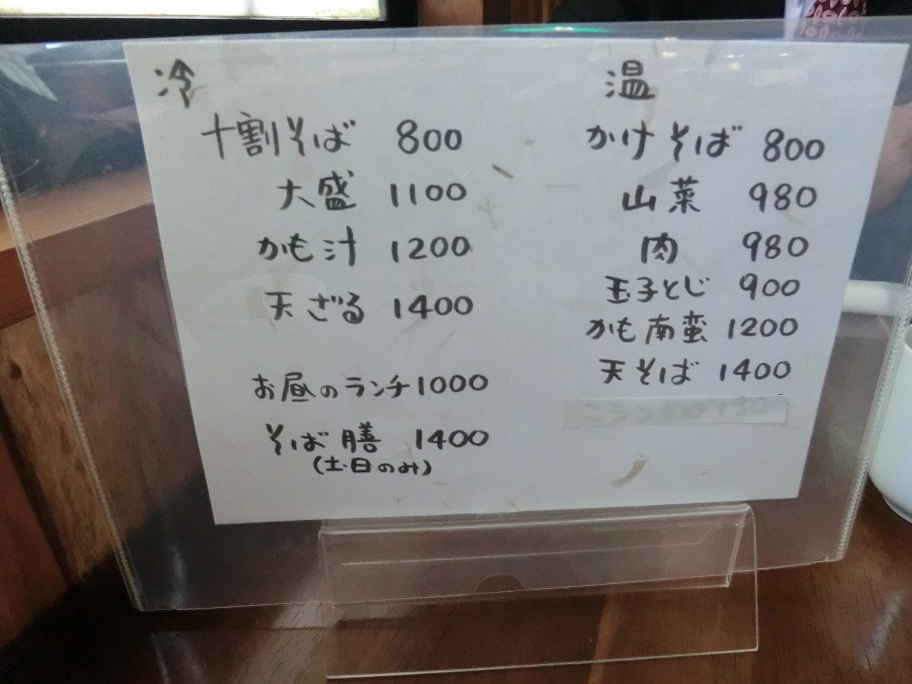 冷
十割そば 800
大盛 1100
かも汁 1200
天ざる 1400
お昼のランチ 1000
そば膳 1400
(土・日のみ)
温
かけそば 800
山菜 980
肉 980
玉子とじ 900
かも南蛮 1200
天そば 1400